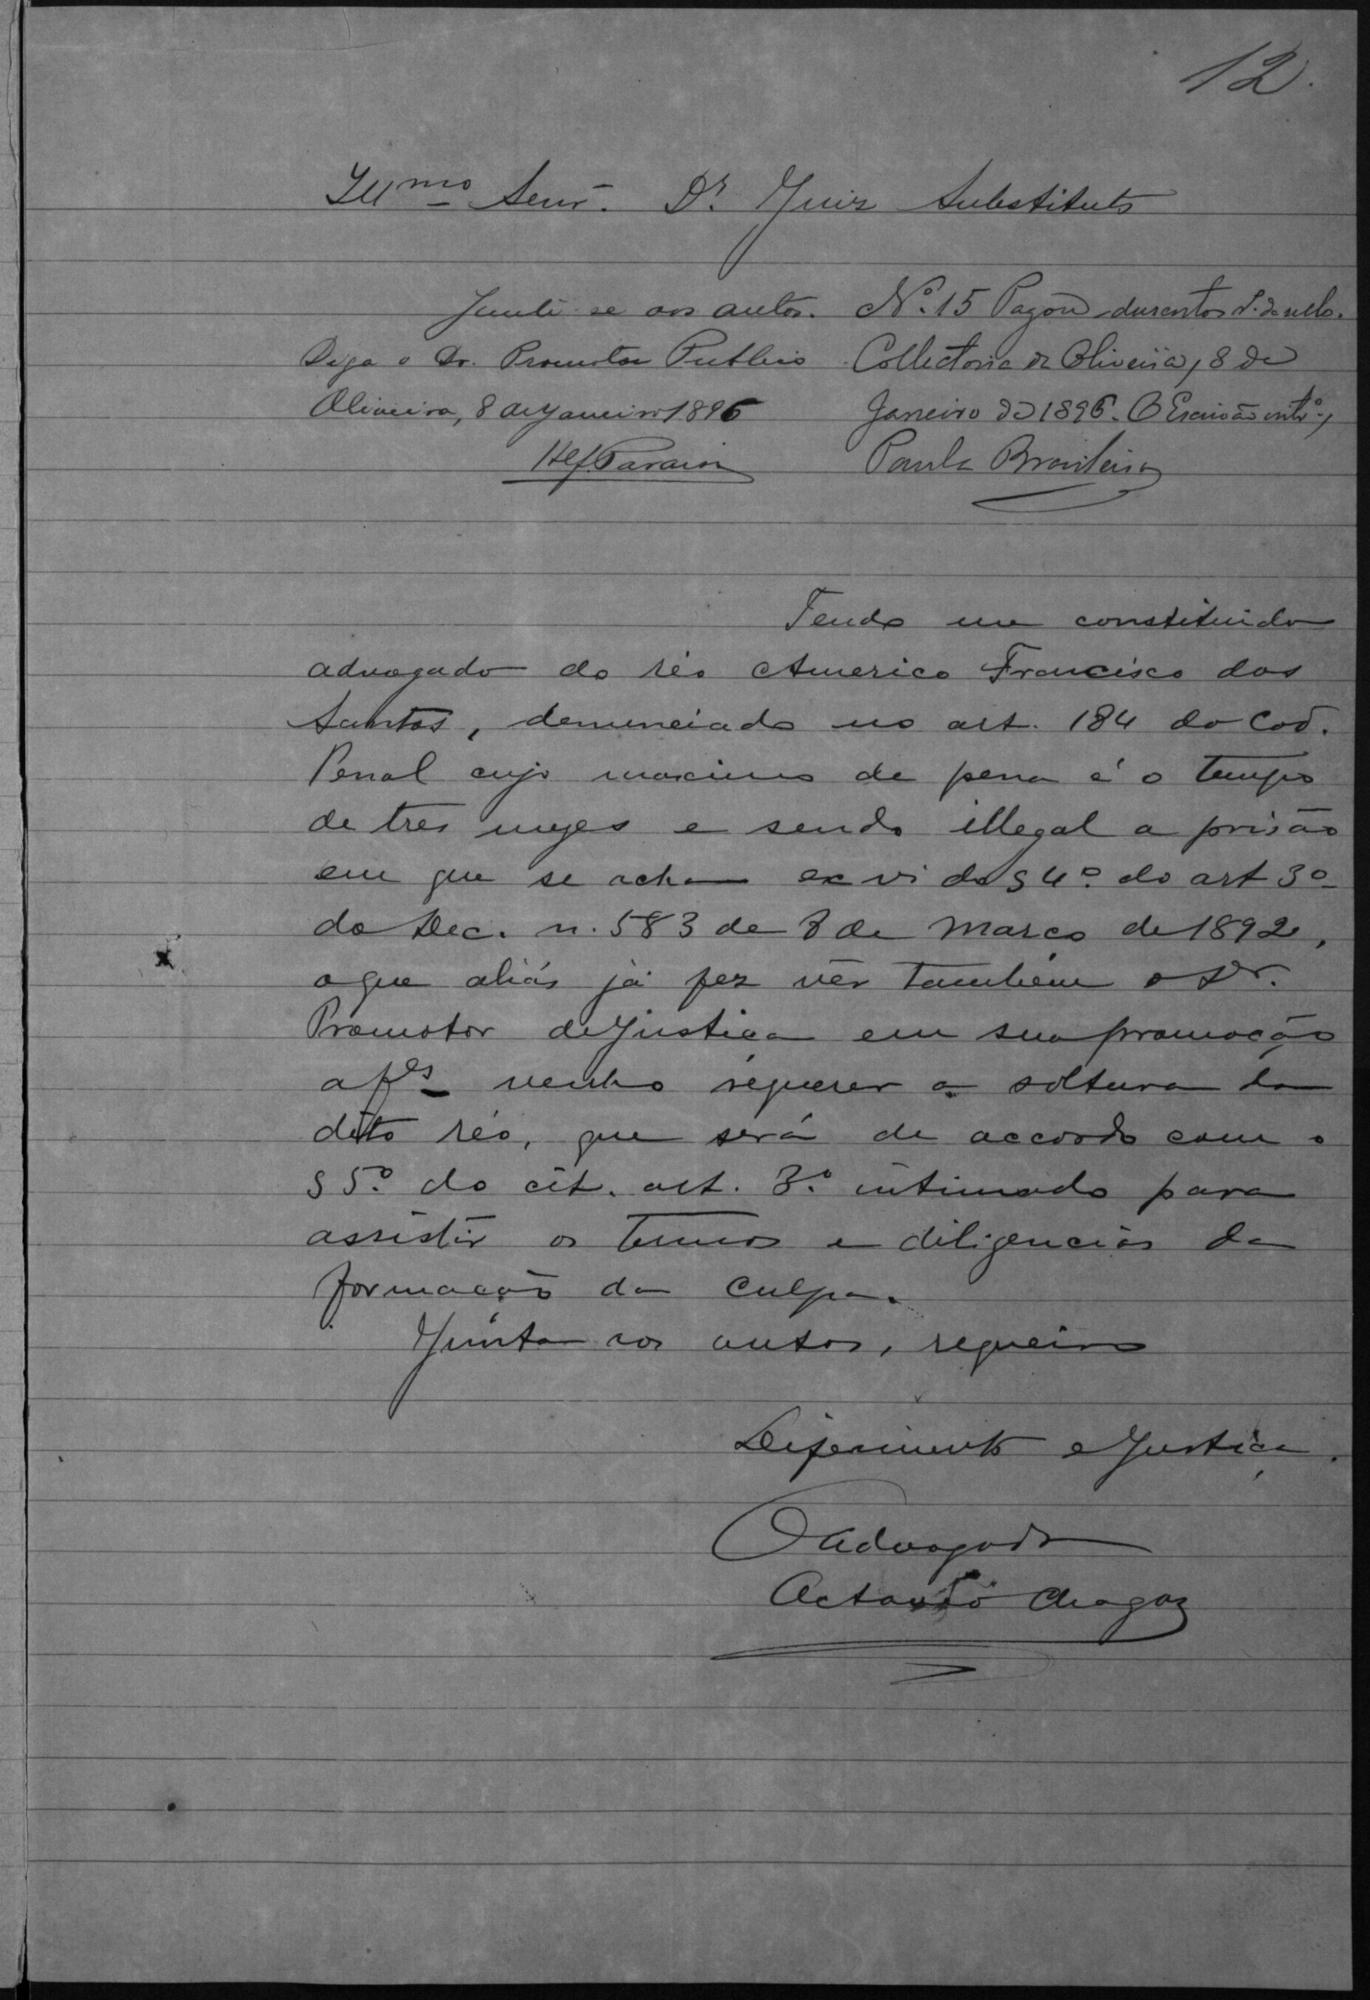 12.
Illmo Senr. Dr. Juiz Substituto
Junte se aos autos.
Diga o Dr. Promotor Publico
Oliveira, 8 de Janeiro 1896
Nº. 15 Pagou dusentos rs. de sello.
Collectoria de Oliveira, 8 de
Janeiro de 1896. O Escrivão intº.,
Paula Brasileiro
Tendo me constituido
advogado do réo Americo Francisco dos
Santos, denunciado no art. 184 do Cod.
Penal cujo maximo de pena é o tempo
de tres mezes e sendo illegal a prisão
em que se acha ex vi do § 4º. do art 3º
do Dec. n. 583 de 8 de Março de 1892,
o que aliás já fez vêr tambem o Dr.
Promotor de Justiça em sua promoção
a fls venho requerer a soltura do
dito réo, que será de accordo com o
§ 5º. do cit. art. 3º. intimado para
assistir os termos e diligencias da
formação da culpa.
Junta aos autos, requeiro
Deferimento e Justiça.
O Advogado
Octavio Chagas